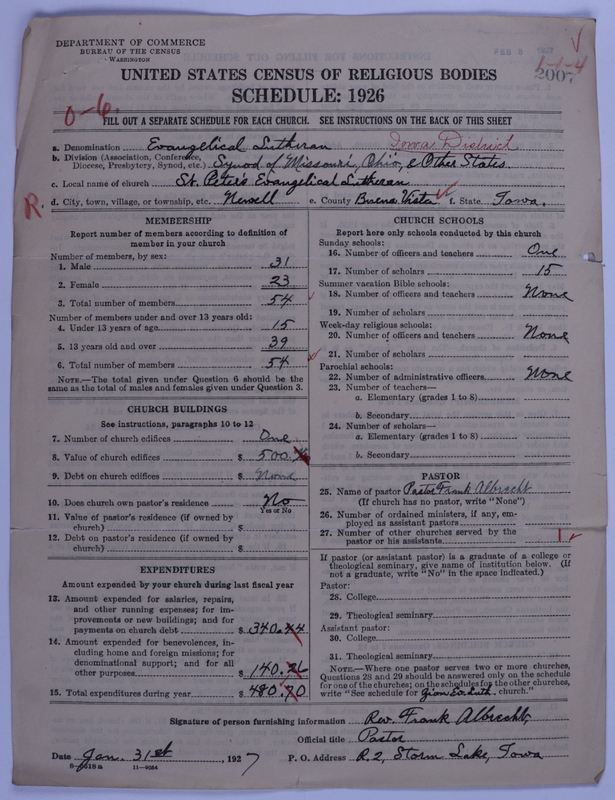 DEPARTMENT OF COMMERCE
BUREAU OF THE CENSUS
WASHINGTON
1-1-4
2007
UNITED STATES CENSUS OF RELIGIOUS BODIES
SCHEDULE: 1926
0-6.
FILL OUT A SEPARATE SCHEDULE FOR EACH CHURCH. SEE INSTRUCTIONS ON THE BACK OF THIS SHEET
a. Denomination Evangelical Lutheran Iowa District
b. Division (Association, Conference, Diocese, Presbytery, Synod, etc.) Synod of Missouri, Ohio, & Other States.
c. Local name of church St. Peter's Evangelical Lutheran
R. d. City, town, village, or township, etc. Newell e. County Buena Vista f. State Iowa.
MEMBERSHIP
Report number of members according to definition of
member in your church
Number of members, by sex:
1. Male 31
2. Female 23
3. Total number of members 54
Number of members under and over 13 years old:
4. Under 13 years of age 15
5. 13 years old and over 39
6. Total number of members 54
NOTE.—The total given under Question 6 should be the
same as the total of males and females given under Question 3.
CHURCH BUILDINGS
See instructions, paragraphs 10 to 12
7. Number of church edifices One
8. Value of church edifices $ 500.
9. Debt on church edifices $ None
10. Does church own pastor's residence No
Yes or No
11. Value of pastor's residence (if owned by
church) $
12. Debt on pastor's residence (if owned by
church) $
EXPENDITURES
Amount expended by your church during last fiscal year
13. Amount expended for salaries, repairs,
and other running expenses; for im-
provements or new buildings; and for
payments on church debt $ 340.44
14. Amount expended for benevolences, in-
cluding home and foreign missions; for
denominational support; and for all
other purposes $ 140.26
15. Total expenditures during year $ 480.70
CHURCH SCHOOLS
Report here only schools conducted by this church
Sunday schools:
16. Number of officers and teachers One
17. Number of scholars 15
Summer vacation Bible schools:
18. Number of officers and teachers None
19. Number of scholars
Week-day religious schools:
20. Number of officers and teachers None
21. Number of scholars
Parochial schools:
22. Number of administrative officers None
23. Number of teachers—
a. Elementary (grades 1 to 8)
b. Secondary
24. Number of scholars—
a. Elementary (grades 1 to 8)
b. Secondary
PASTOR
25. Name of pastor Pastor Frank Albrecht
(If church has no pastor, write "None")
26. Number of ordained ministers, if any, em-
ployed as assistant pastors
27. Number of other churches served by the
pastor or his assistants 1
If pastor (or assistant pastor) is a graduate of a college or
theological seminary, give name of institution below. (If
not a graduate, write "No" in the space indicated.)
Pastor:
28. College
29. Theological seminary
Assistant pastor:
30. College
31. Theological seminary
NOTE.—Where one pastor serves two or more churches,
Questions 28 and 29 should be answered only on the schedule
for one of the churches; on the schedules for the other churches,
write "See schedule for Zion Ev. Luth. church."
Signature of person furnishing information Rev. Frank Albrecht,
Official title Pastor
Date Jan. 31st, 1927 P. O. Address R. 2, Storm Lake, Iowa
11—9084